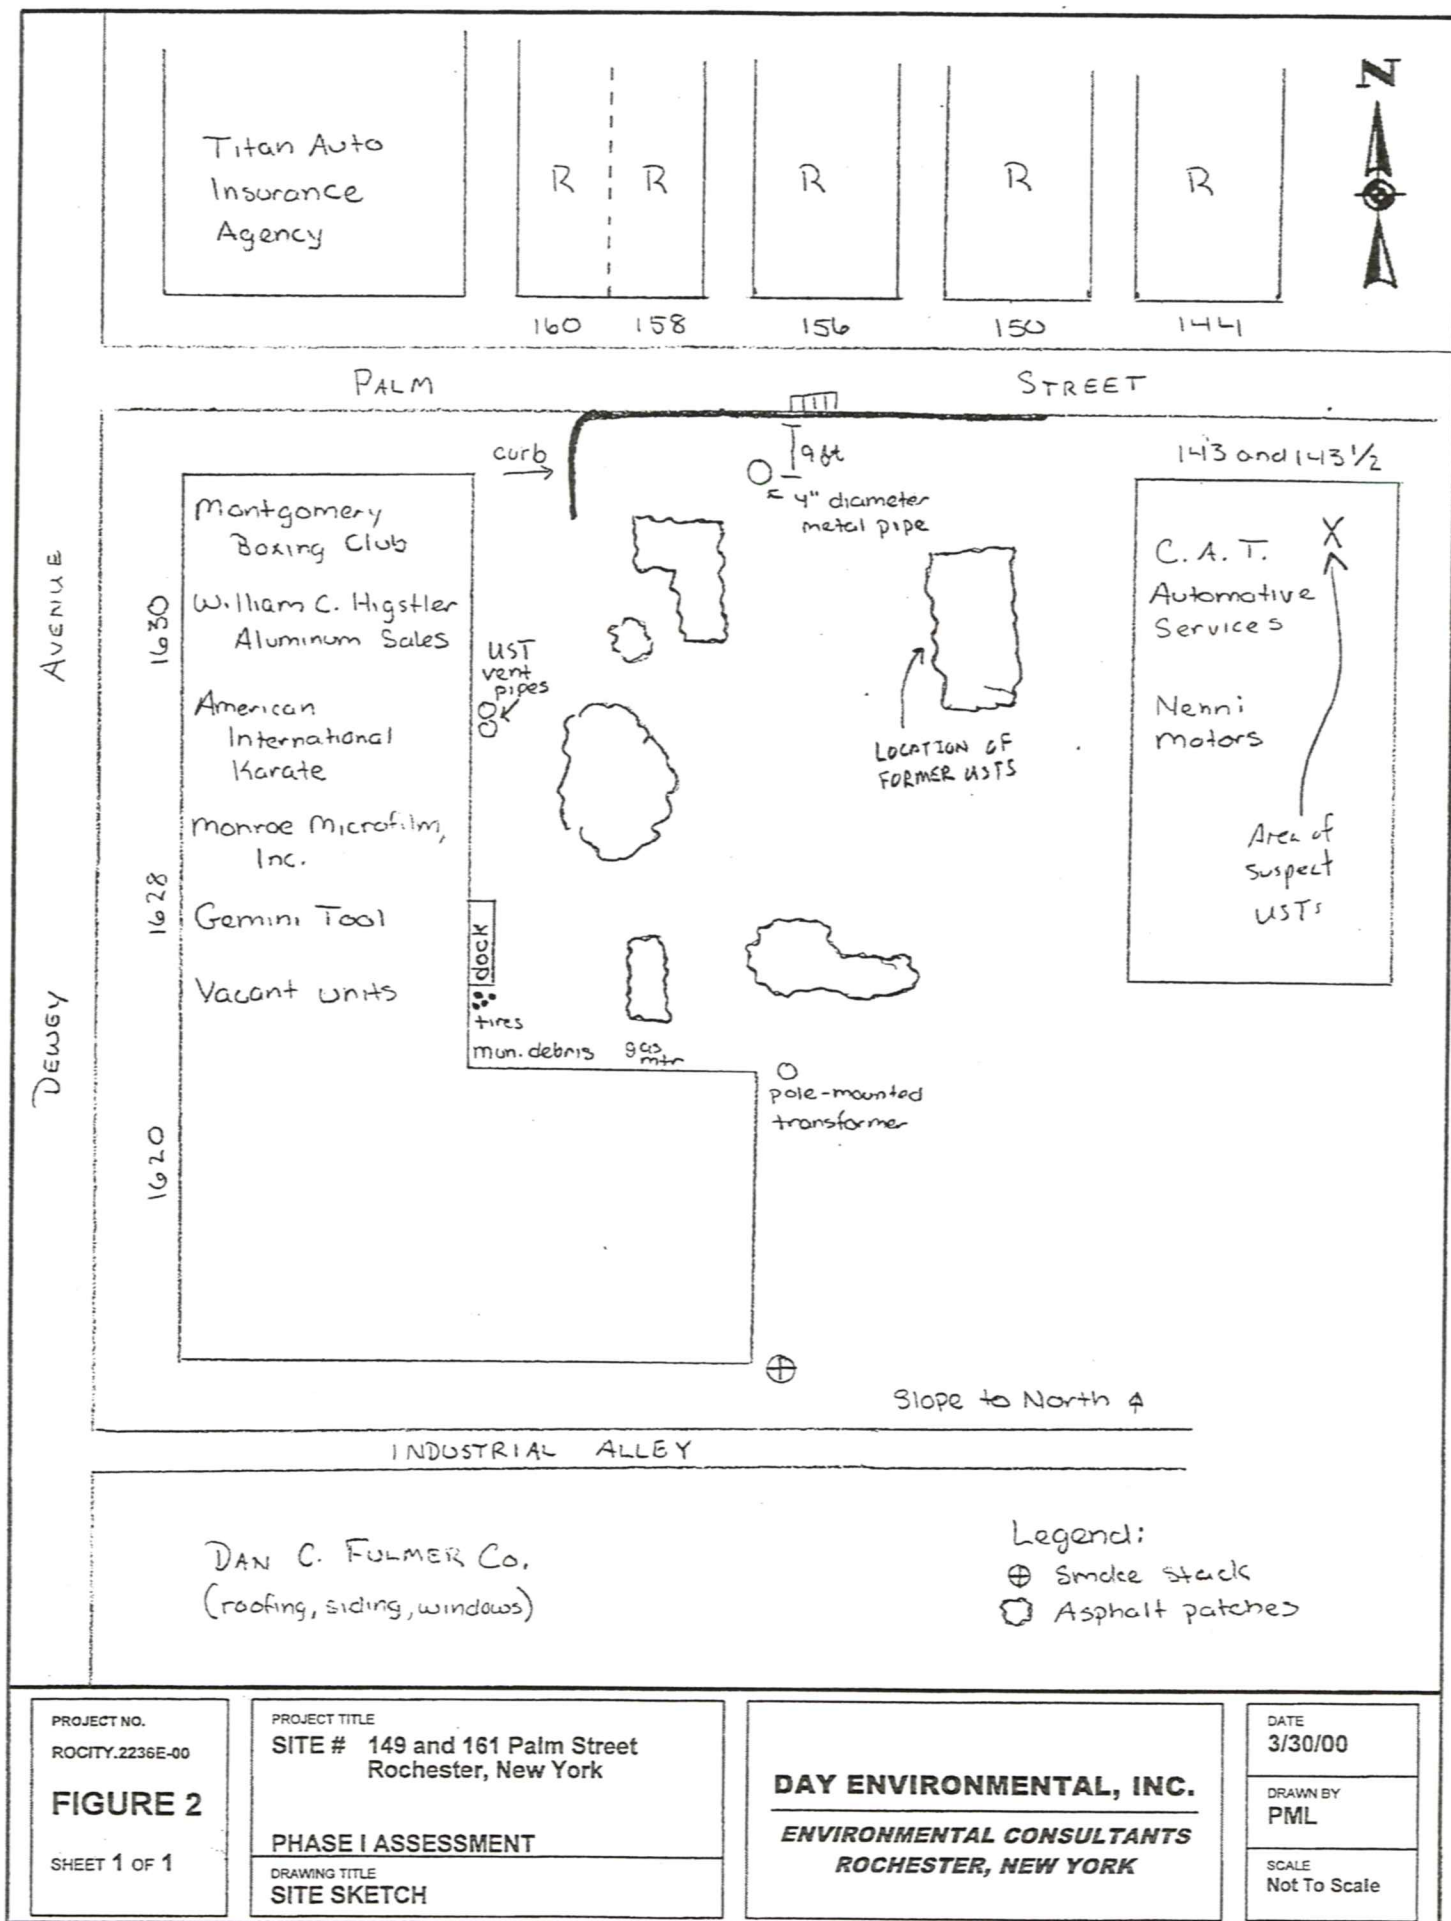 N
Titan Auto
Insurance
Agency
R
R
R
R
R
160
158
156
150
144
PALM
STREET
curb
9 ft
4" diameter
metal pipe
143 and 143 1/2
Montgomery
Boxing Club
William C. Higstler
Aluminum Sales
American
International
Karate
Monroe Microfilm,
Inc.
Gemini Tool
Vacant units
AVENUE
DEWEY
1630
1628
1620
UST
vent
pipes
LOCATION OF
FORMER USTS
C. A. T.
Automotive
Services
Nenni
Motors
X
Area of
suspect
USTs
dock
tires
mun. debris
gas
mtr
pole-mounted
transformer
Slope to North
INDUSTRIAL ALLEY
DAN C. FULMER CO.
(roofing, siding, windows)
Legend:
Smoke stack
Asphalt patches
PROJECT NO.
ROCITY.2236E-00
FIGURE 2
SHEET 1 OF 1
PROJECT TITLE
SITE # 149 and 161 Palm Street
Rochester, New York
PHASE I ASSESSMENT
DRAWING TITLE
SITE SKETCH
DAY ENVIRONMENTAL, INC.
ENVIRONMENTAL CONSULTANTS
ROCHESTER, NEW YORK
DATE
3/30/00
DRAWN BY
PML
SCALE
Not To Scale